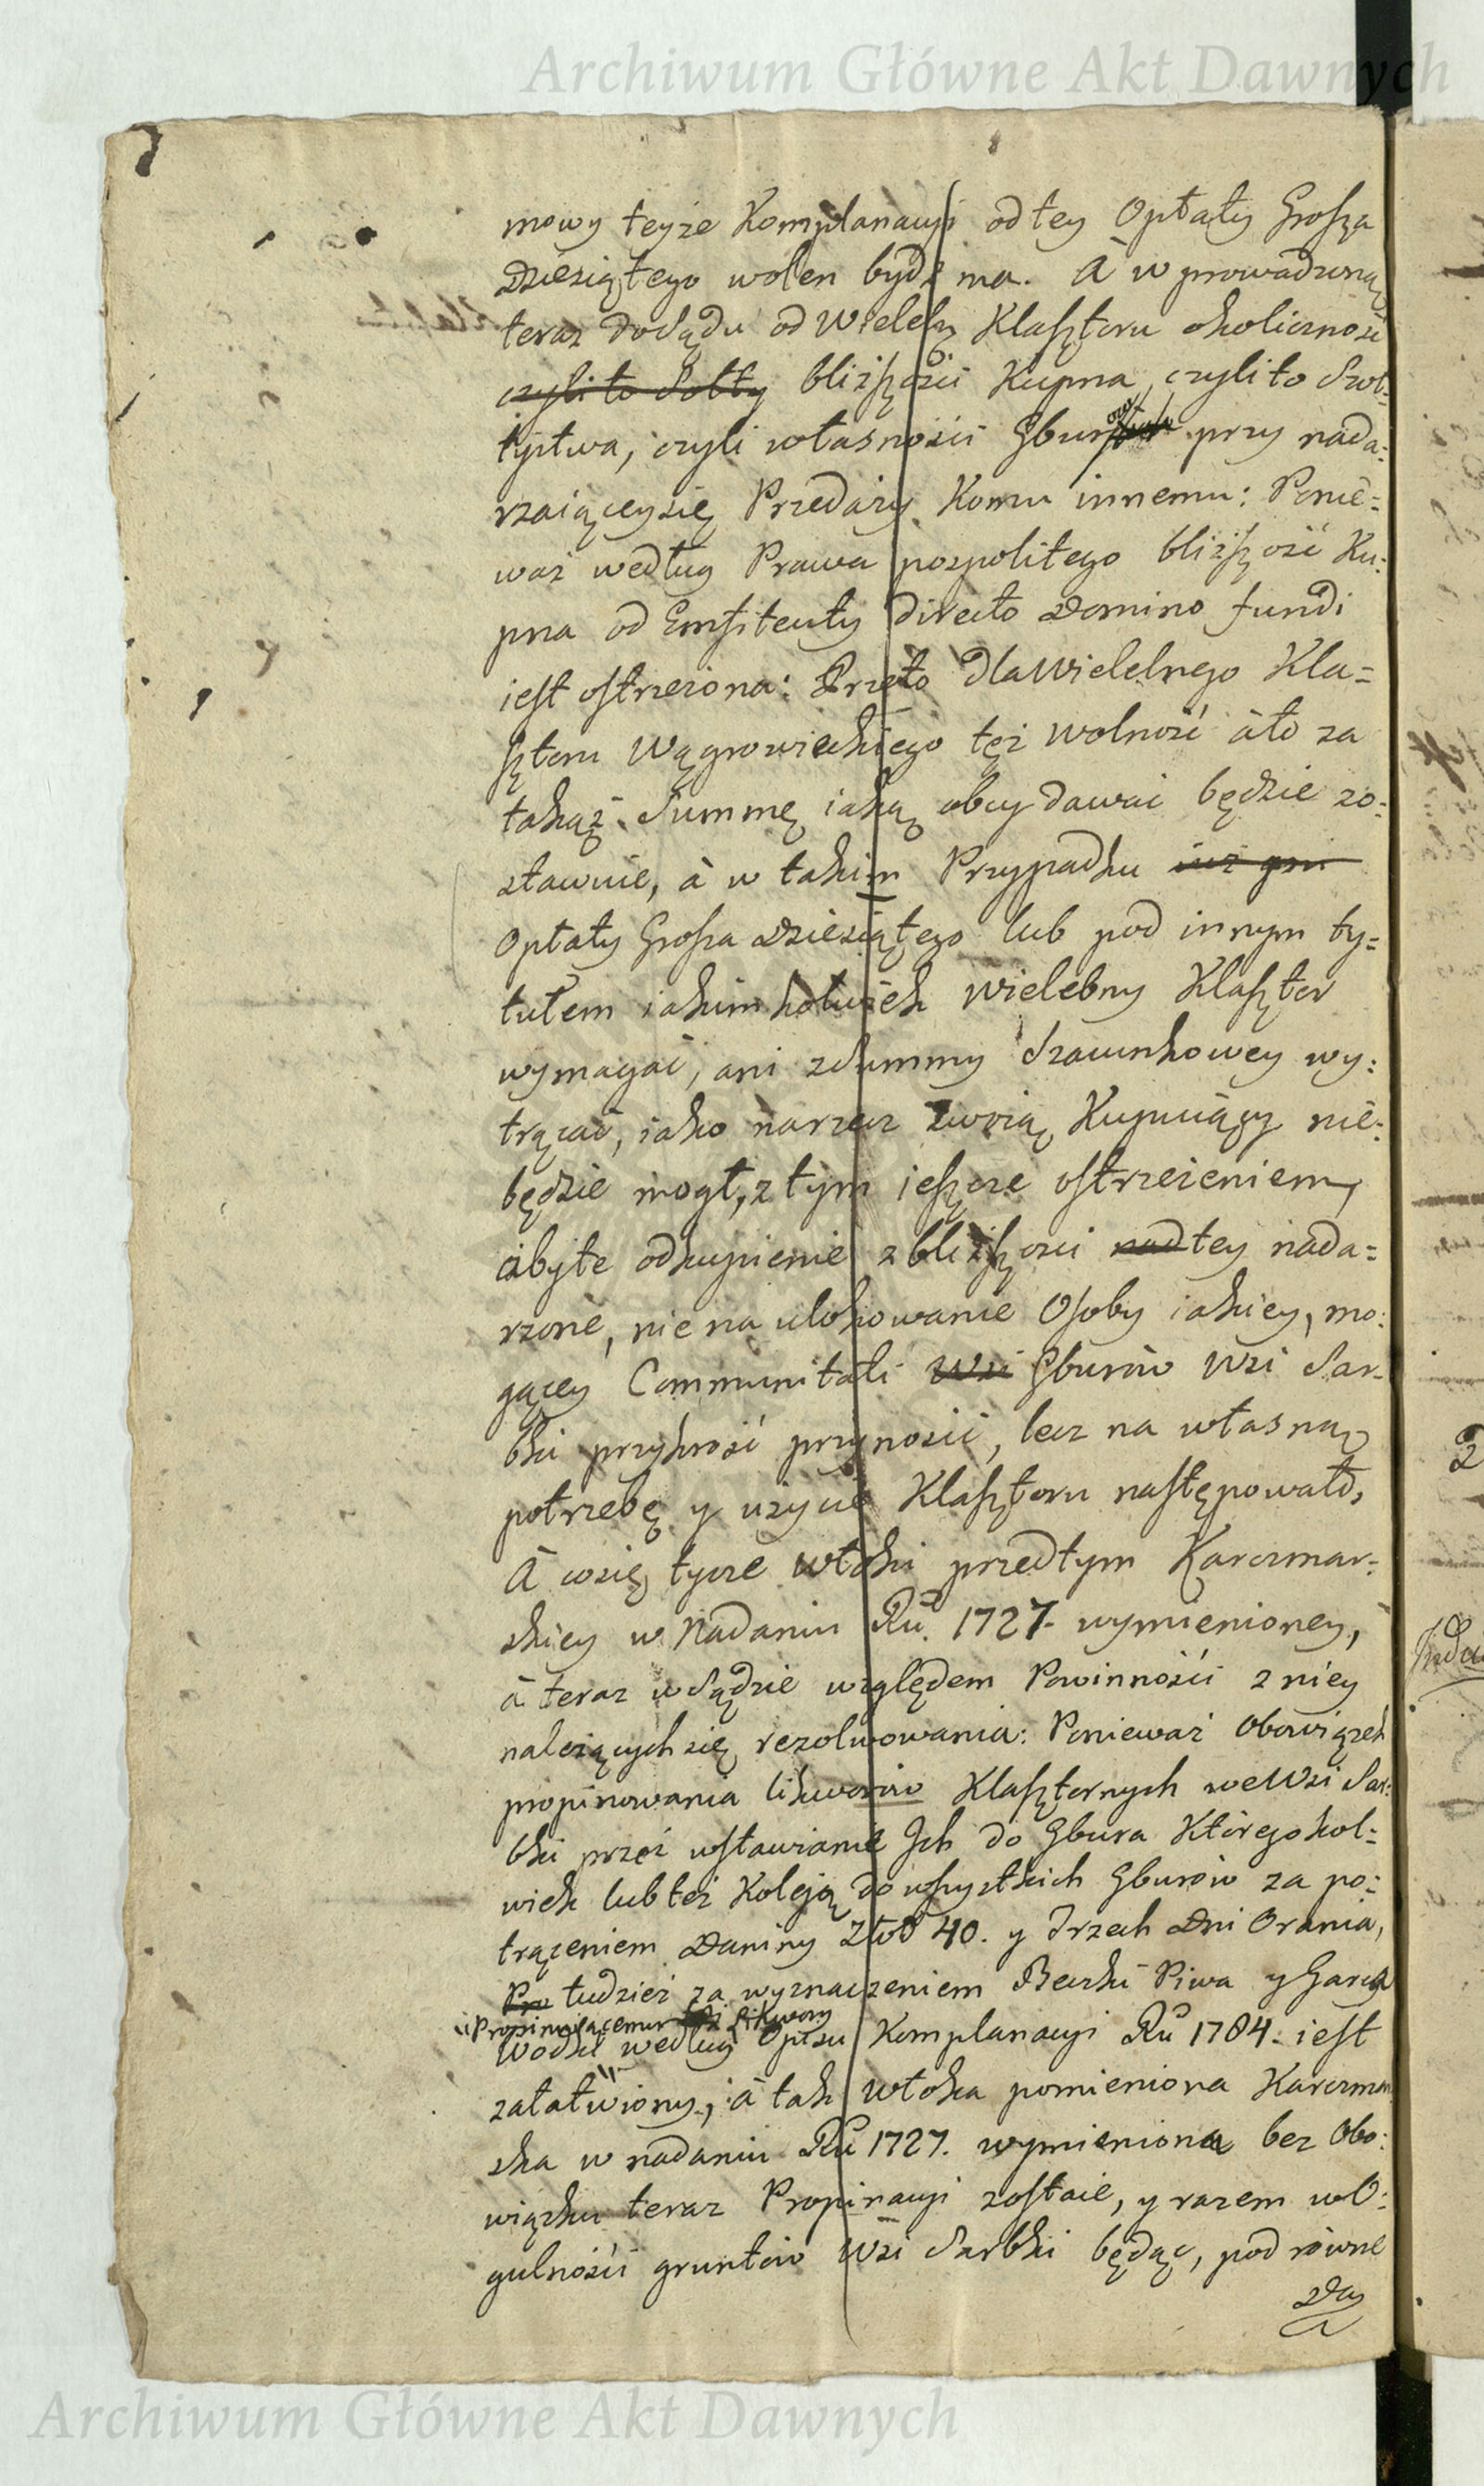 Archiwum Główne Akt Dawnych
mowy teyże Komplanacyi od tey Opłaty Grosza
Dziesiątego wolen bydź ma. A wprowadzoną
teraz do Sądu od Wieleb: Klasztoru okoliczność
czyli to Sołty bliższości Kupna, czyli to Szoł=
tystwa, czyli własności Gburow przy nada=
rzaiącey się Przedaży Komu innemu: Ponie=
waż według Prawa pospolitego bliższość Ku:
pna od Emfiteuty directo Domino fundi
iest ostrzeżona: Przeto dla Wielebnego Kla=
sztoru Wągrowieckiego też wolność á to za
takąż Summę iaką obcy dawać będzie zo=
stawuie, á w takim Przypadku iuż przi
Opłaty Grosza Dziesiątego lub pod innym ty=
tułem iakimkolwiek Wielebny Klasztor
wymagać, ani z Summy Szacunkowey wy:
trącać, iako na rzecz swoią Kupuiący nie:
będzie mogł, z tym ieszcze ostrzeżeniem,
ábyte odkupienie z bliższości nad tey nada=
rzone, nie na ulokowanie Osoby iakiey, mo:
gącey Communitati Wsi Gburów Wsi Sar=
bki przykrość przynosić, lecz na własną
potrzebę y użycie Klasztoru następowało,
A co się tycze włoki przedtym Karczmar=
skiey w Nadaniu Ru. 1727. wymienioney,
á teraz w Sądzie względem Powinności z niey
należących się rezolwowania: Ponieważ Obowiązek
propinowania likworów Klasztornych we Wsi Sar:
bki przez wstawianie Ich do Gbura Któregokol=
wiek lub też Koleją do wszystkich Gburów za po=
trąceniem Daniny Złot 40. y Trzech Dni Orania,
Pro tudzież za wyznaczeniem Beczki Piwa y Garca
Propinuiącemu likwory
Wodki według Opisu Komplanacyi Ru 1784. iest
załatwiony, á tak włoka pomieniona Karczmar
ska w nadaniu Ru 1727. wymieniona bez Obo:
wiązku teraz Propinacyi zostaie, y razem w O:
gulności gruntów Wsi Sarbki będąc, pod równe
Da
Archiwum Główne Akt Dawnych